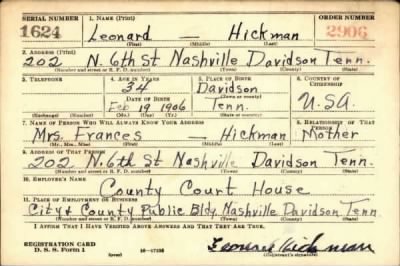 SERIAL NUMBER 1. NAME (Print) ORDER NUMBER
1624 Leonard — Hickman 2906
(First) (Middle) (Last)
2. ADDRESS (Print)
202 N. 6th St Nashville Davidson Tenn.
(Number and street or R. F. D. number) (Town) (County) (State)
3. TELEPHONE 4. AGE IN YEARS 5. PLACE OF BIRTH 6. COUNTRY OF CITIZENSHIP
34 Davidson
(Town or county)
DATE OF BIRTH
Feb 19 1906 Tenn. U.S.A.
(Exchange) (Number) (Mo.) (Day) (Yr.) (State or country)
7. NAME OF PERSON WHO WILL ALWAYS KNOW YOUR ADDRESS 8. RELATIONSHIP OF THAT PERSON
Mrs. Frances — Hickman Mother
(Mr., Mrs., Miss) (First) (Middle) (Last)
9. ADDRESS OF THAT PERSON
202 N. 6th St Nashville Davidson Tenn.
(Number and street or R. F. D. number) (Town) (County) (State)
10. EMPLOYER'S NAME
County Court House
11. PLACE OF EMPLOYMENT OR BUSINESS
City & County Public Bldg. Nashville Davidson Tenn.
(Number and street or R. F. D. number) (Town) (County) (State)
I AFFIRM THAT I HAVE VERIFIED ABOVE ANSWERS AND THAT THEY ARE TRUE.
REGISTRATION CARD
D. S. S. Form 1 (over) Leonard Hickman
(Registrant's signature)